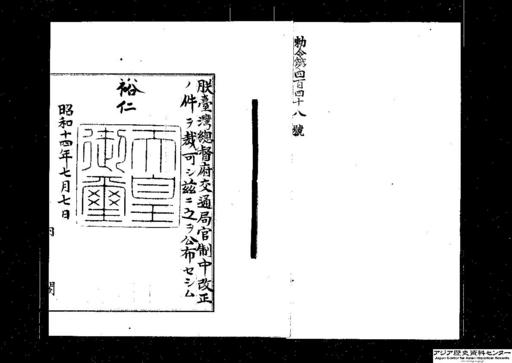 勅令第四百四十八號
朕臺灣總督府交通局官制中改正
ノ件ヲ裁可シ茲ニ之ヲ公布セシム
裕仁
天皇
御璽
昭和十四年七月七日
内閣
アジア歴史資料センター
Japan Center for Asian Historical Records